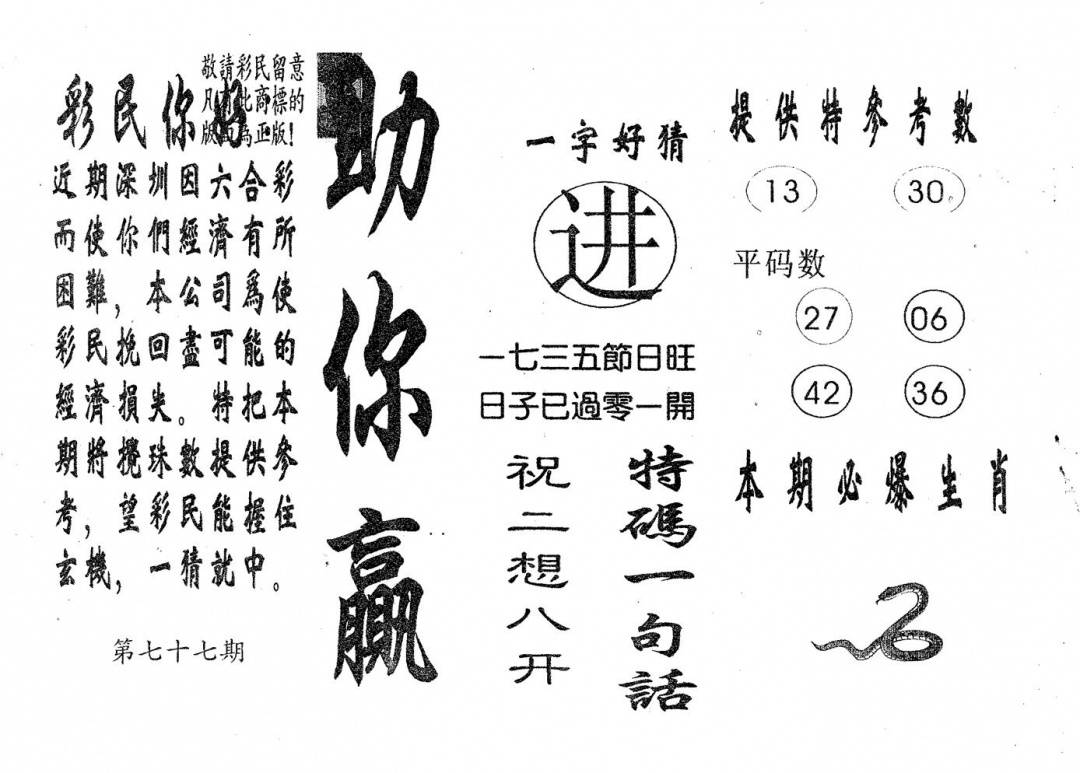 敬請彩民留意
凡有此商標的
版面為正版!
彩民你好
近期深圳因六合彩
而使你們經濟有所
困難,本公司爲使
彩民挽回盡可能的
經濟損失。特把本
期將攪珠數提供參
考,望彩民能握住
玄機,一猜就中。
第七十七期
助你贏
一字好猜
进
一七三五節日旺
日子已過零一開
特碼一句話
祝二想八开
提供特參考數
13 30
平码数
27 06
42 36
本期必爆生肖